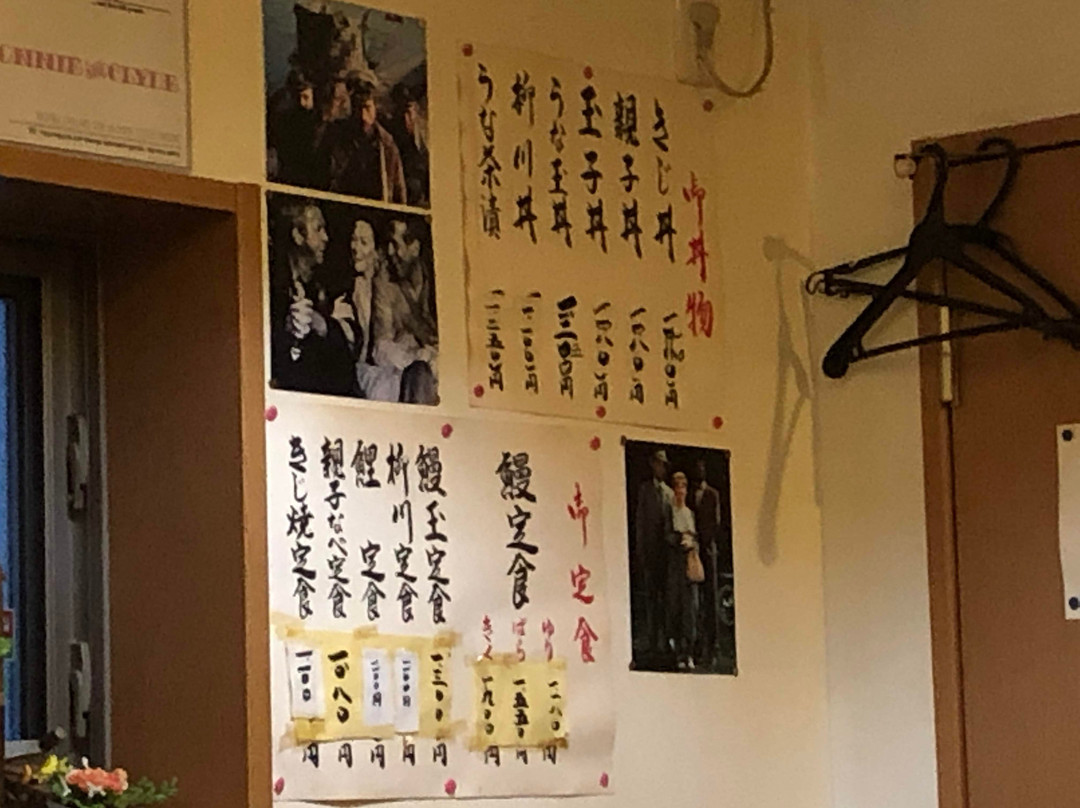 CLYDE
御丼物
きじ丼
親子丼 一〇八〇円
玉子丼 一〇八〇円
うな玉丼
柳川丼
うな茶漬 一二五〇円
御定食
鰻定食
ゆり
ばら 一五五〇円
きく 一九〇〇円
鰻玉定食 一三〇〇円
柳川定食 一一〇〇円
鯉定食 一一〇〇円
親子なべ定食 一〇八〇円
きじ焼定食 一一〇〇円